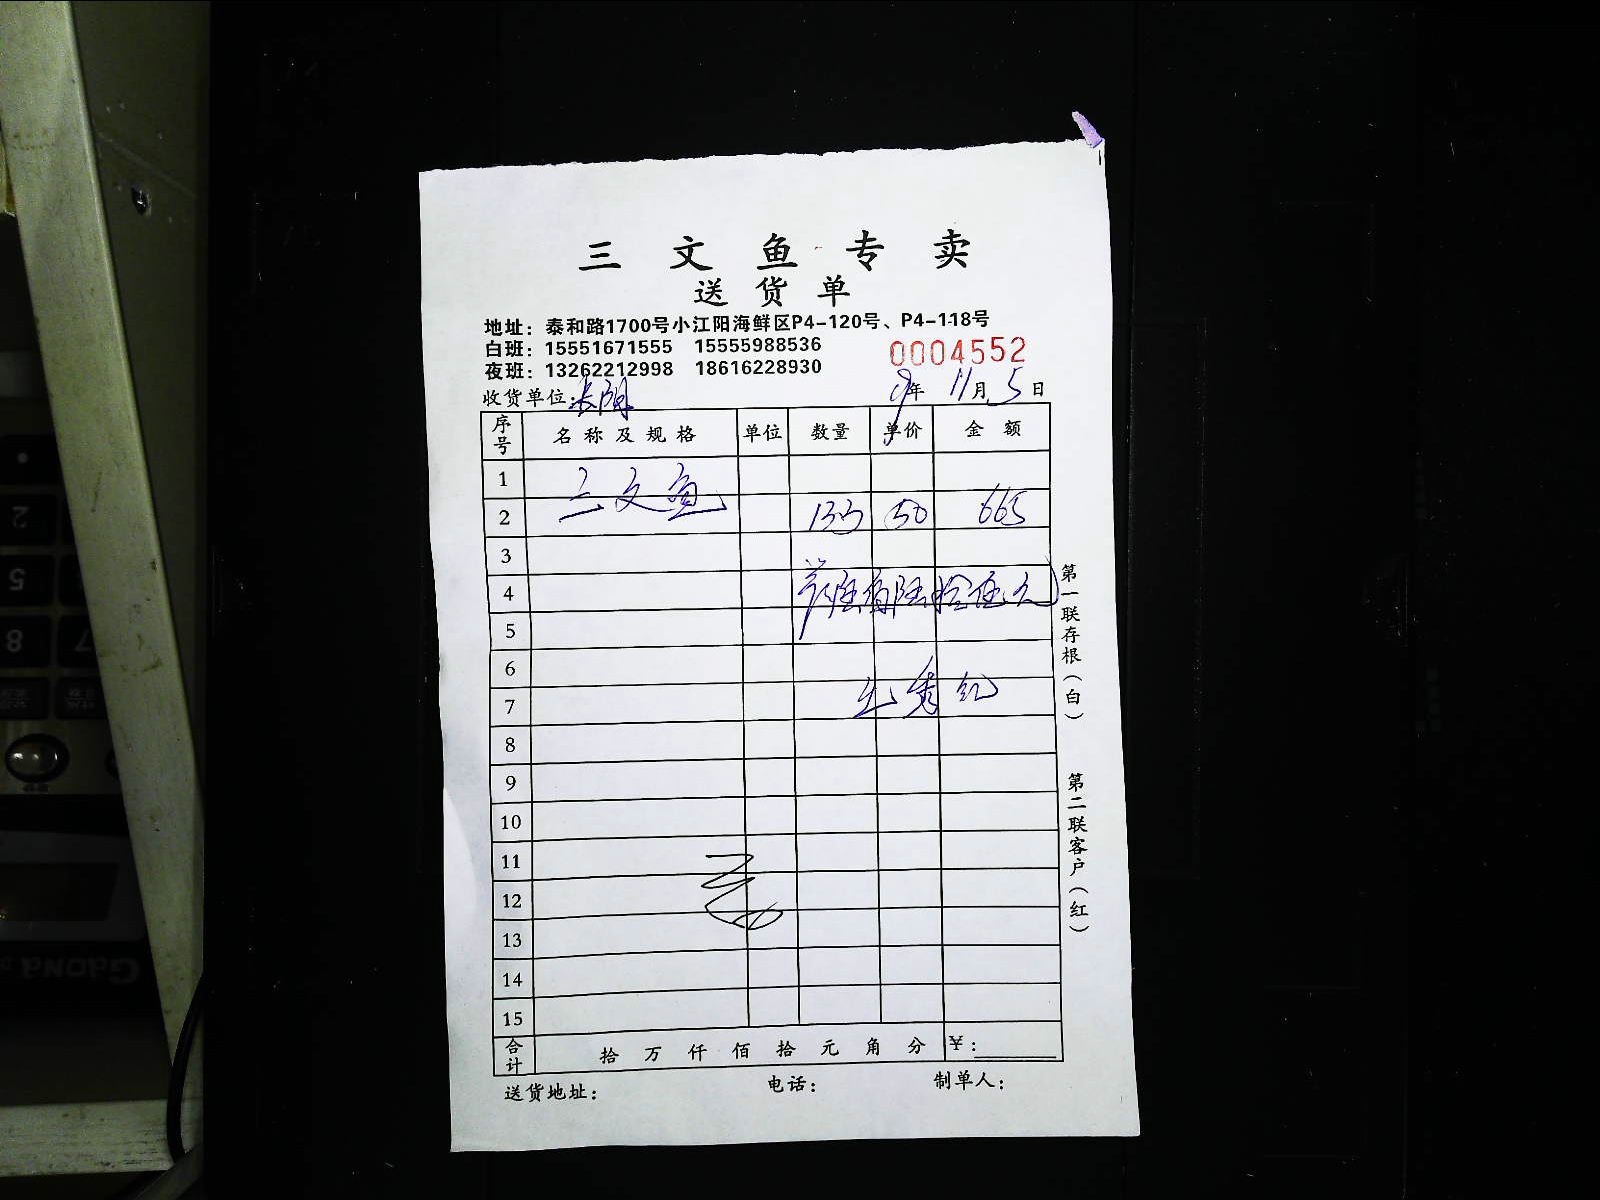 三文鱼专卖
送货单
地址：泰和路1700号小江阳海鲜区P4-120号、P4-118号
白班：15551671555 15555988536
0004552
夜班：13262212998 18616228930
收货单位：长阴 19年11月5日
序号 名称及规格 单位 数量 单价 金额
1
三文鱼
2 133 50 665
3
4 陆佰陆拾伍元
5
6
7
8
9
10
11
12
13
14
15
合计 拾万仟佰拾元角分 ¥：
送货地址： 电话： 制单人：
第一联存根（白）
第二联客户（红）
Gaona
2
5
8
7